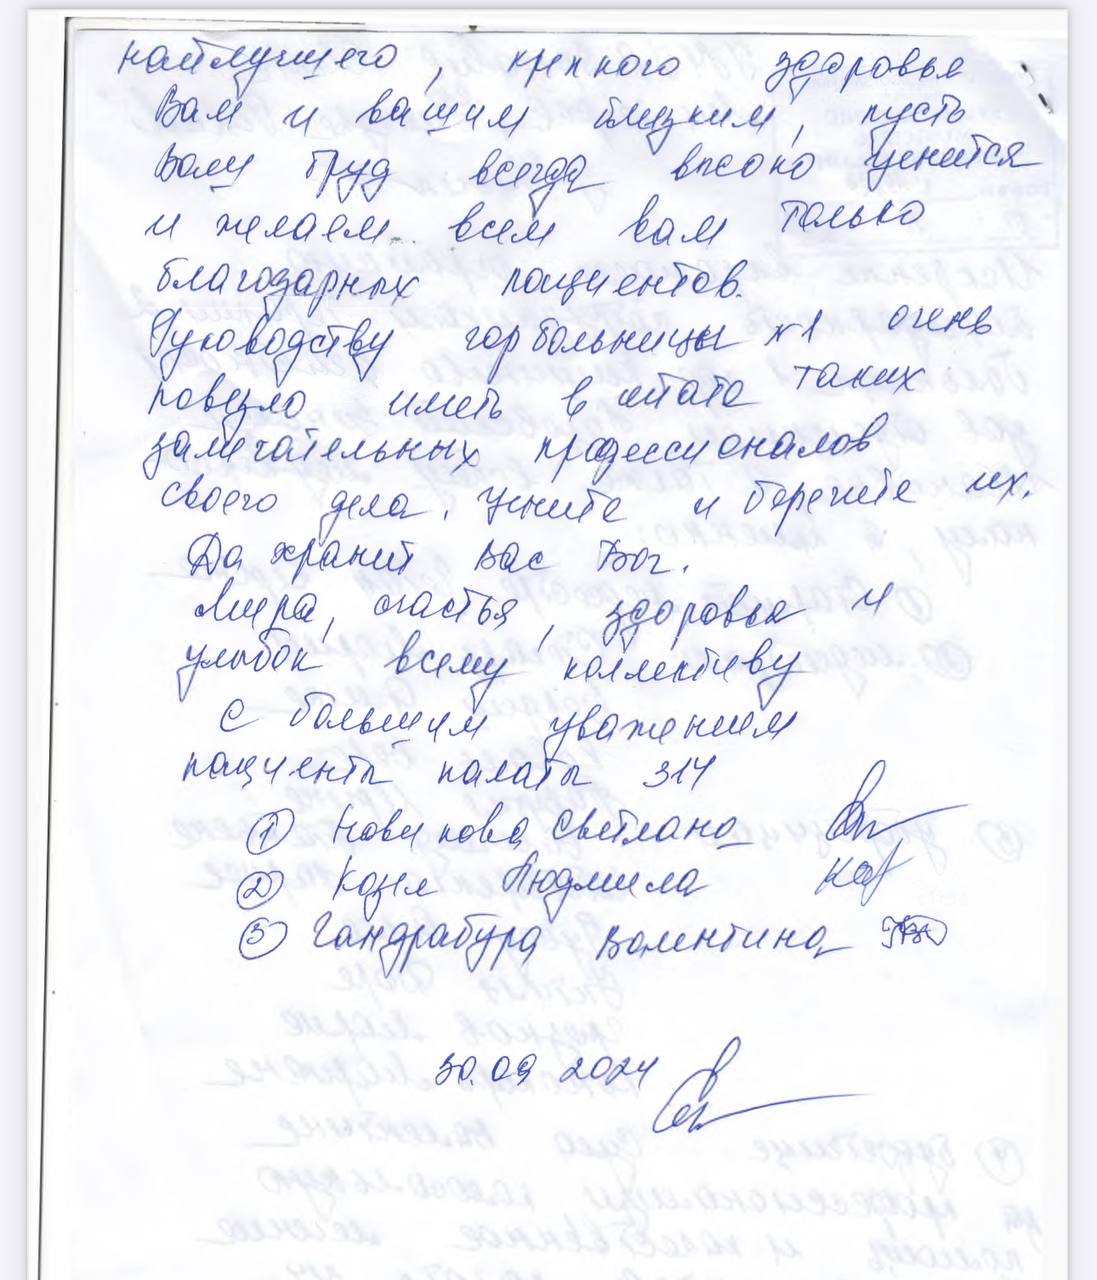 наилучшего, крепкого здоровья
Вам и вашим близким, пусть
Ваш труд всегда высоко ценится
и желаем всем вам только
благодарных пациентов.
Руководству горбольницы №1 очень
повезло иметь в штате таких
замечательных профессионалов
своего дела. Цените и берегите их.
Да хранит Вас Бог.
Мира, счастья, здоровья и
улыбок всему коллективу
С большим уважением
пациенты палаты 314
① Новикова Светлана
② Козел Людмила
③ Гандрабура Валентина
30.09 2024